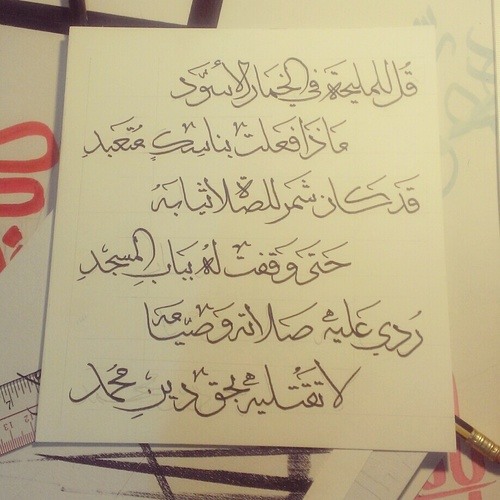 قُل للمليحَة في الخمار الأسوَّد
مَاذَا فعَلت بناسِكٍ متَعَبدِ
قَد كَان شمر للصَلاة ثيابهُ
حَتىَ وَقفتْ لهُ ببَابِ المسْجِدِ
رُدي عَليهْ صَلاتهْ وَصيَامَهْ
لا تَقتُليهْ بحق دين مُحَمد